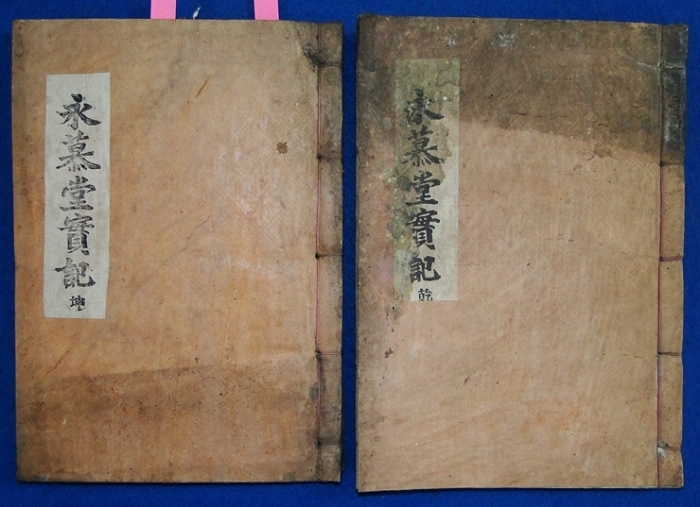 永慕堂實記 坤
永慕堂實記 乾